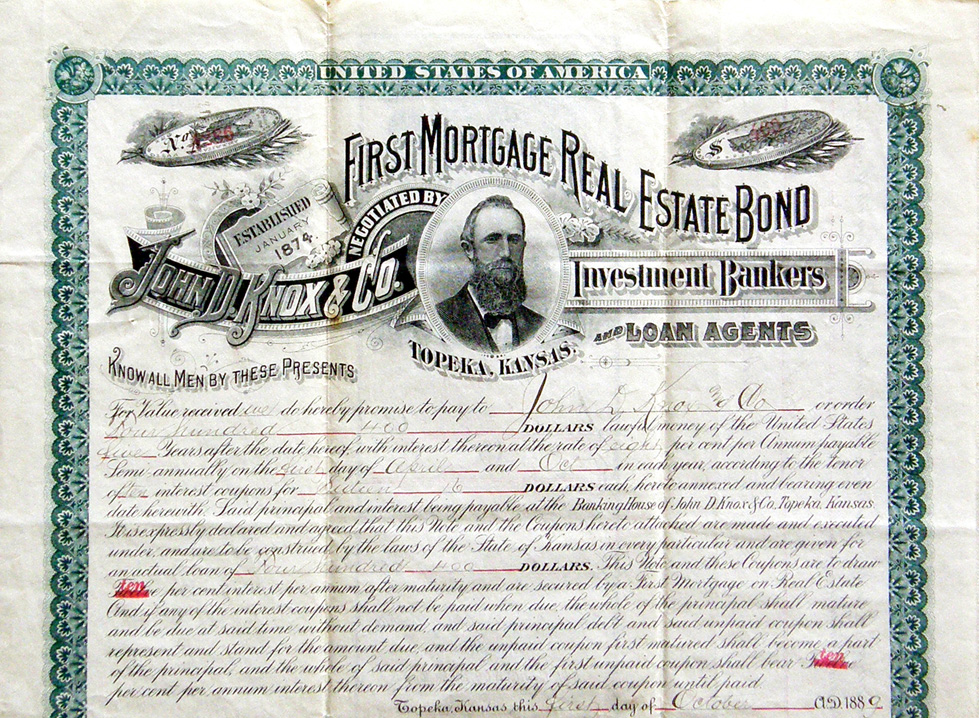 UNITED STATES OF AMERICA
No.
$ 400
FIRST MORTGAGE REAL ESTATE BOND
ESTABLISHED
JANUARY
1874.
NEGOTIATED BY
JOHN D. KNOX & CO.
Investment Bankers
AND LOAN AGENTS
TOPEKA, KANSAS.
KNOW ALL MEN BY THESE PRESENTS
For Value received we do hereby promise to pay to John D. Knox & Co or order
Four hundred 400 DOLLARS lawful money of the United States
five Years after the date hereof, with interest thereon at the rate of eight per cent per Annum payable
Semi-annually on the first day of April and Oct in each year, according to the tenor
of ten interest coupons for Sixteen 16 DOLLARS each, hereto annexed and bearing even
date herewith. Said principal and interest being payable at the Banking House of John D. Knox & Co. Topeka, Kansas.
It is expressly declared and agreed that this Note and the Coupons hereto attached are made and executed
under, and are to be construed by the laws of the State of Kansas in every particular and are given for
an actual loan of Four hundred 400 DOLLARS. This Note and these Coupons are to draw
ten per cent interest per annum after maturity and are secured by a First Mortgage on Real Estate
And if any of the interest coupons shall not be paid when due, the whole of the principal shall mature
and be due at said time without demand, and said principal debt and said unpaid coupon shall
represent and stand for the amount due, and the unpaid coupon first matured shall become a part
of the principal, and the whole of said principal and the first unpaid coupon shall bear ten
per cent per annum interest thereon from the maturity of said coupon until paid
Topeka, Kansas this first day of October A.D. 188